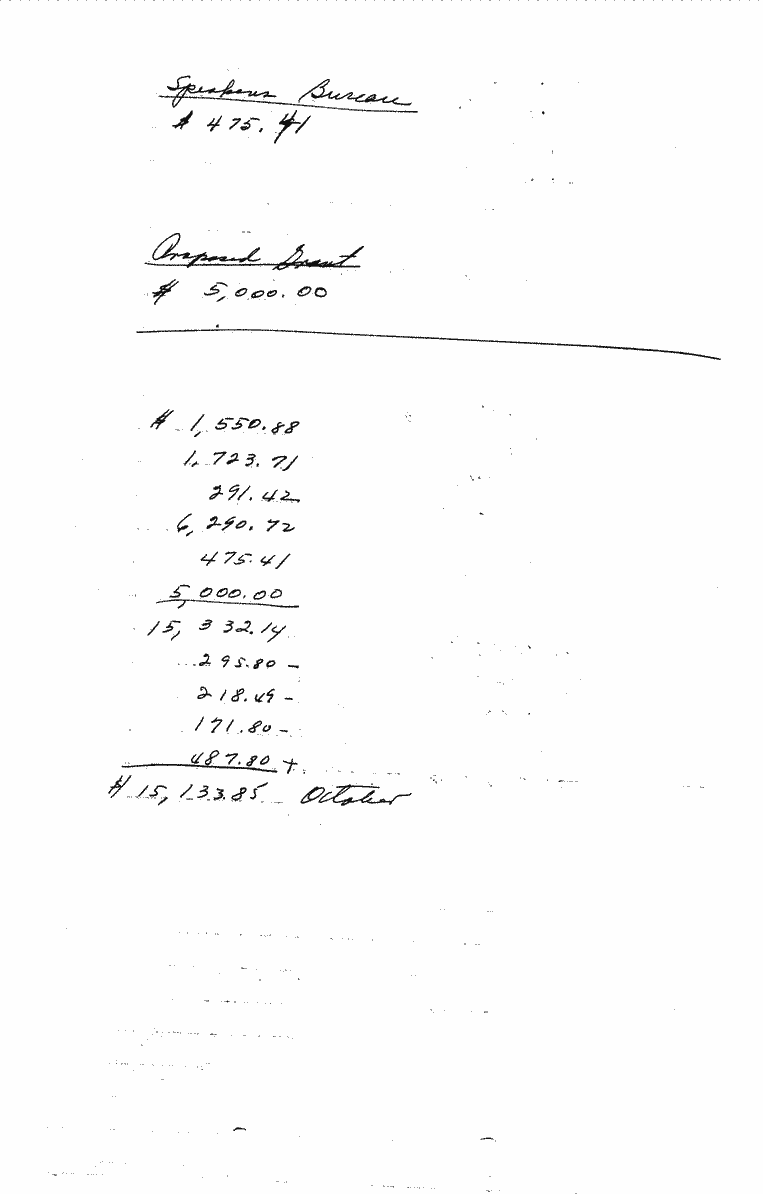 Speakers Bureau
$ 475.41
Proposed Grant
$ 5,000.00
$ 1,550.88
1,723.71
291.42
6,290.72
475.41
5,000.00
15,332.14
295.80 -
218.49 -
171.80 -
487.80 +
$ 15,133.85 October